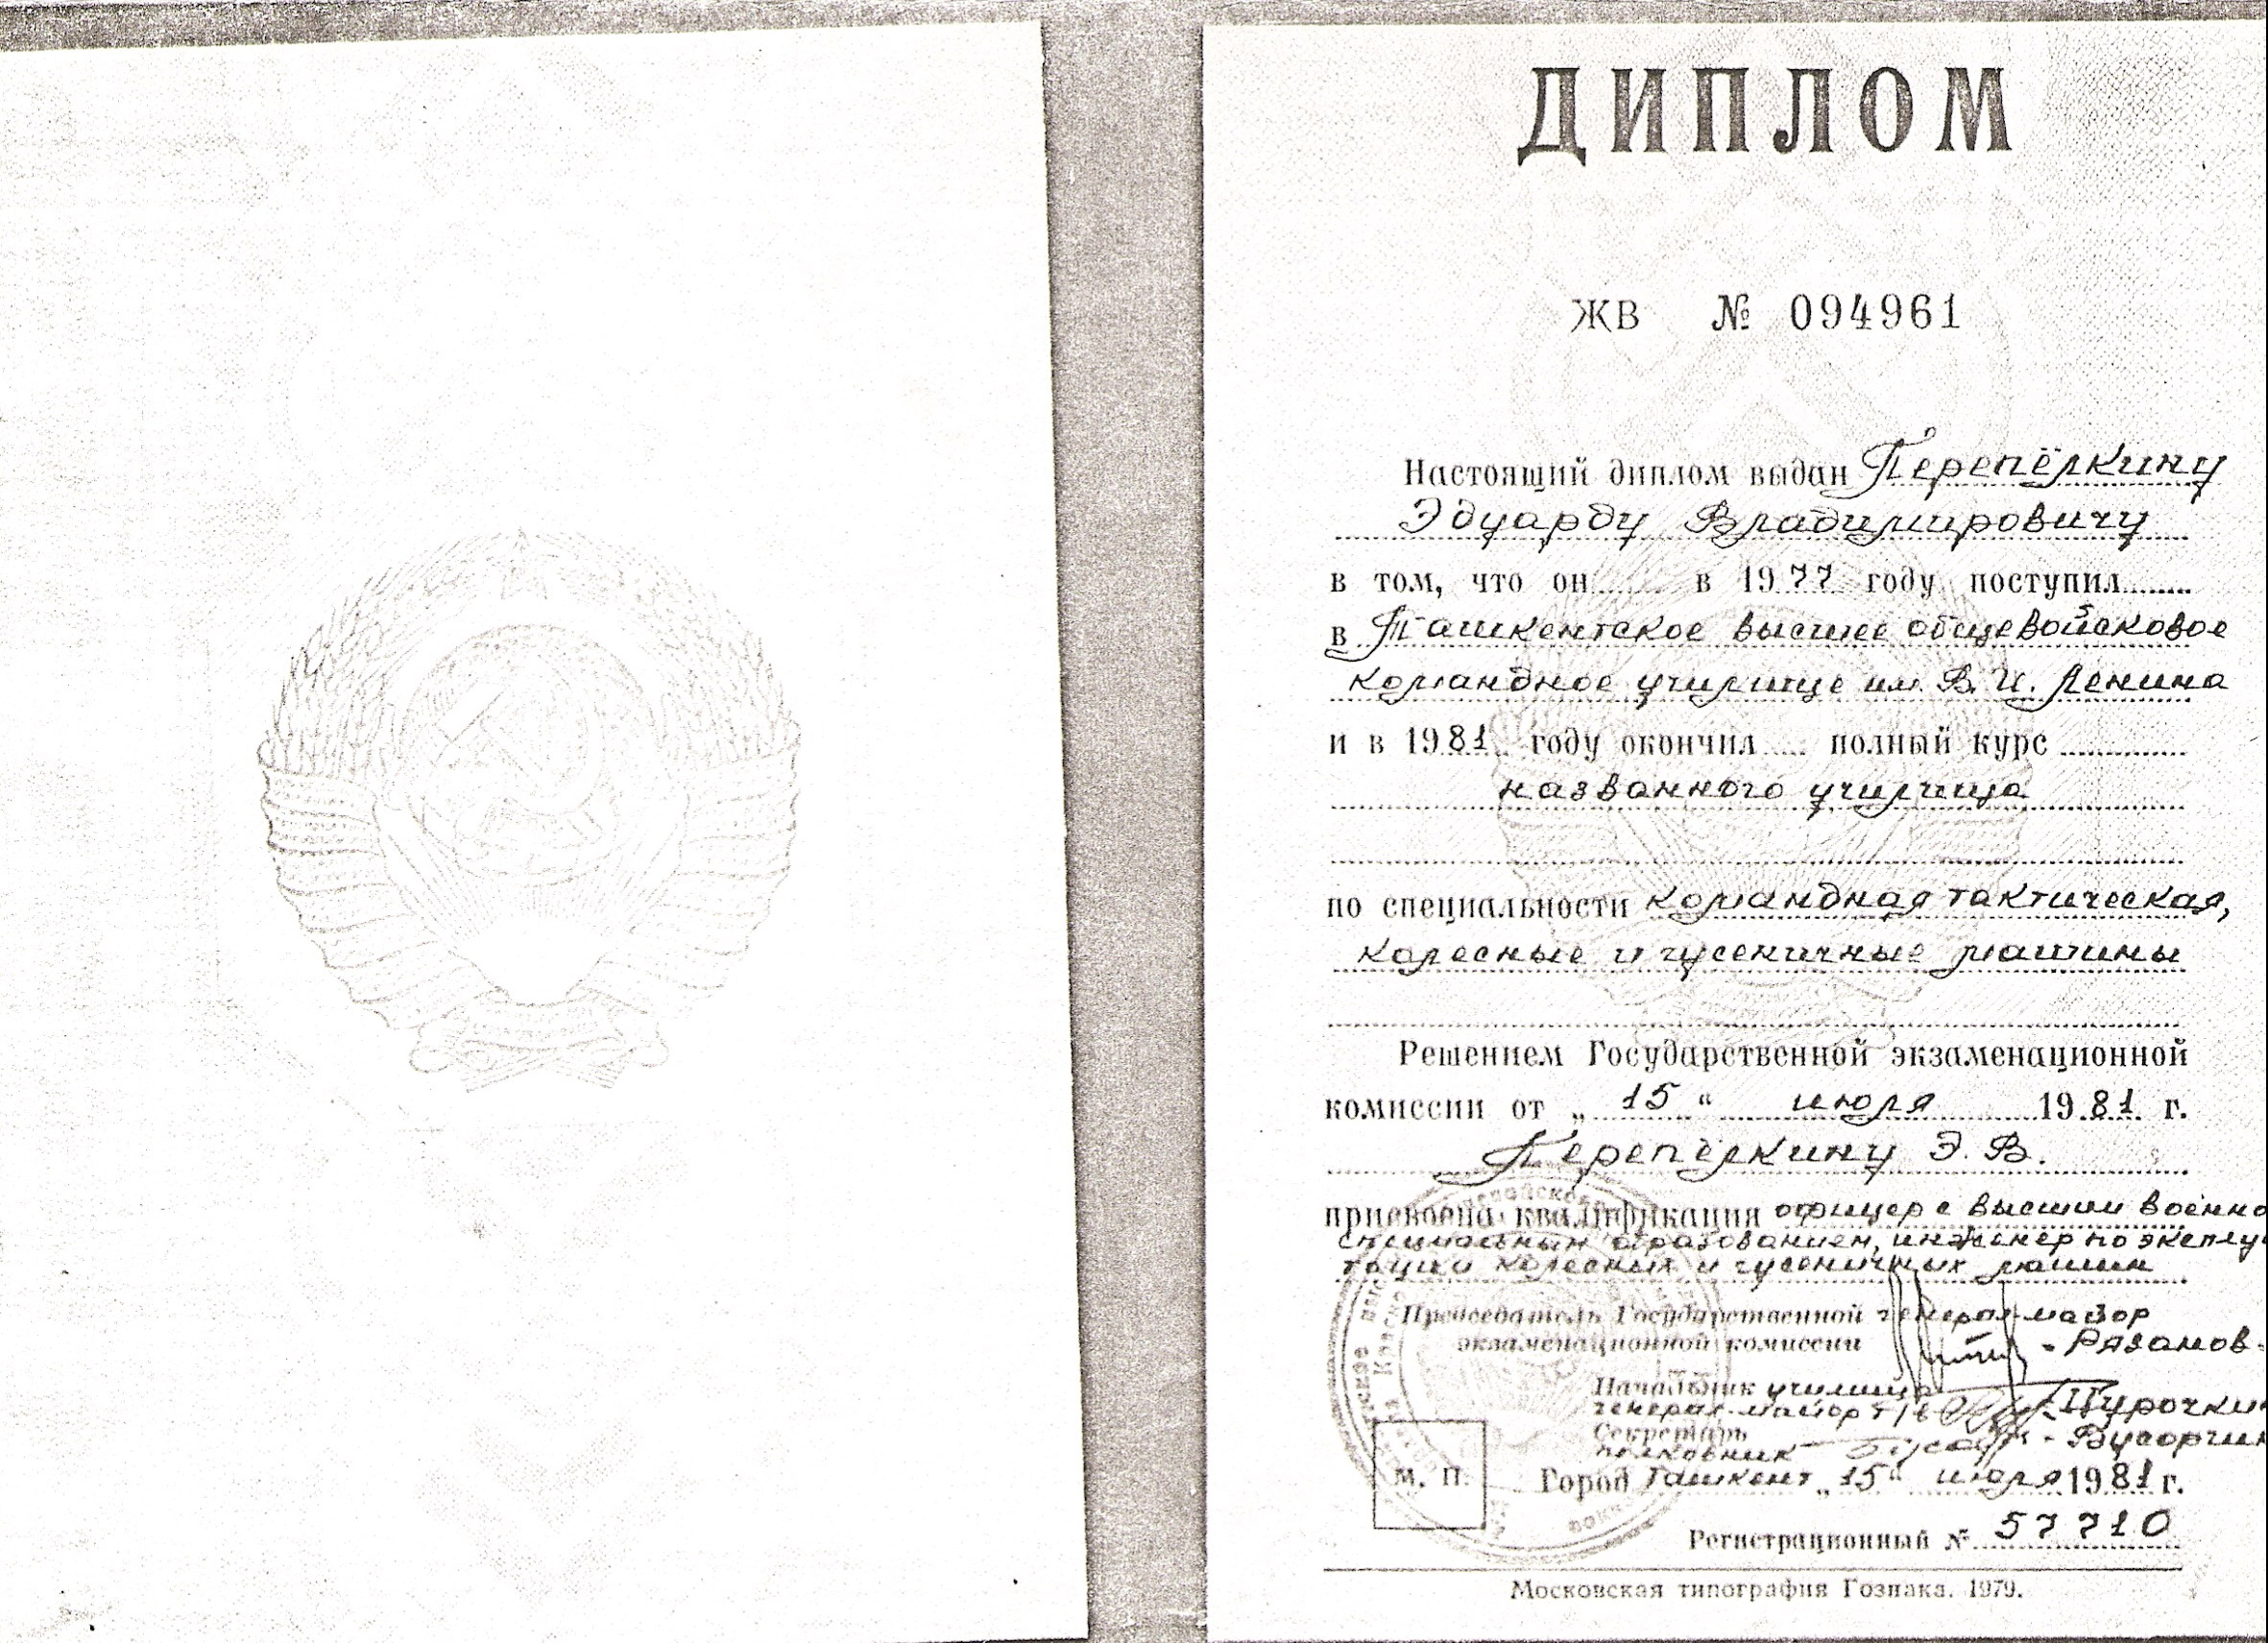 ДИПЛОМ
ЖВ № 094961
Настоящий диплом выдан Перепёлкину
Эдуарду Владимировичу
в том, что он в 1977 году поступил
в Ташкентское высшее общевойсковое
командное училище им. В. И. Ленина
и в 1981 году окончил полный курс
названного училища
по специальности командная тактическая,
колесные и гусеничные машины
Решением Государственной экзаменационной
комиссии от „15“ июля 1981 г.
Перепёлкину Э. В.
присвоена квалификация офицер с высшим военно
специальным образованием, инженер по эксплу
тации колесных и гусеничных машин
Председатель Государственной генерал-майор
экзаменационной комиссии - Рязанов.
Начальник училища
генерал-майор т/в
Секретарь
полковник
М. П. Город Ташкент „15“ июля 1981 г.
Регистрационный № 57710
Московская типография Гознака. 1979.